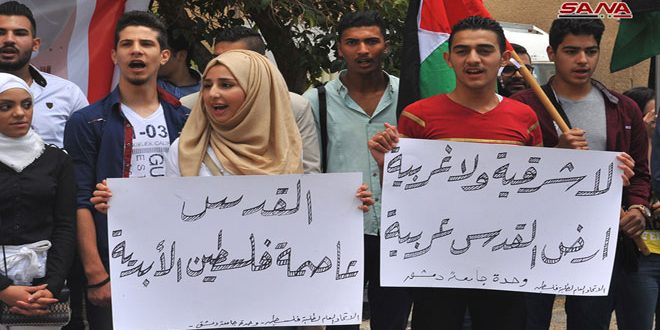 SANA
القدس
عاصمة فلسطين الأبدية
الاتحاد العام لطلبة فلسطين - وحدة جامعة دمشق -
لا شرقية ولا غربية
ارض القدس عربية
وحدة جامعة دمشق
الاتحاد العام لطلبة فلسطين
-03
GU